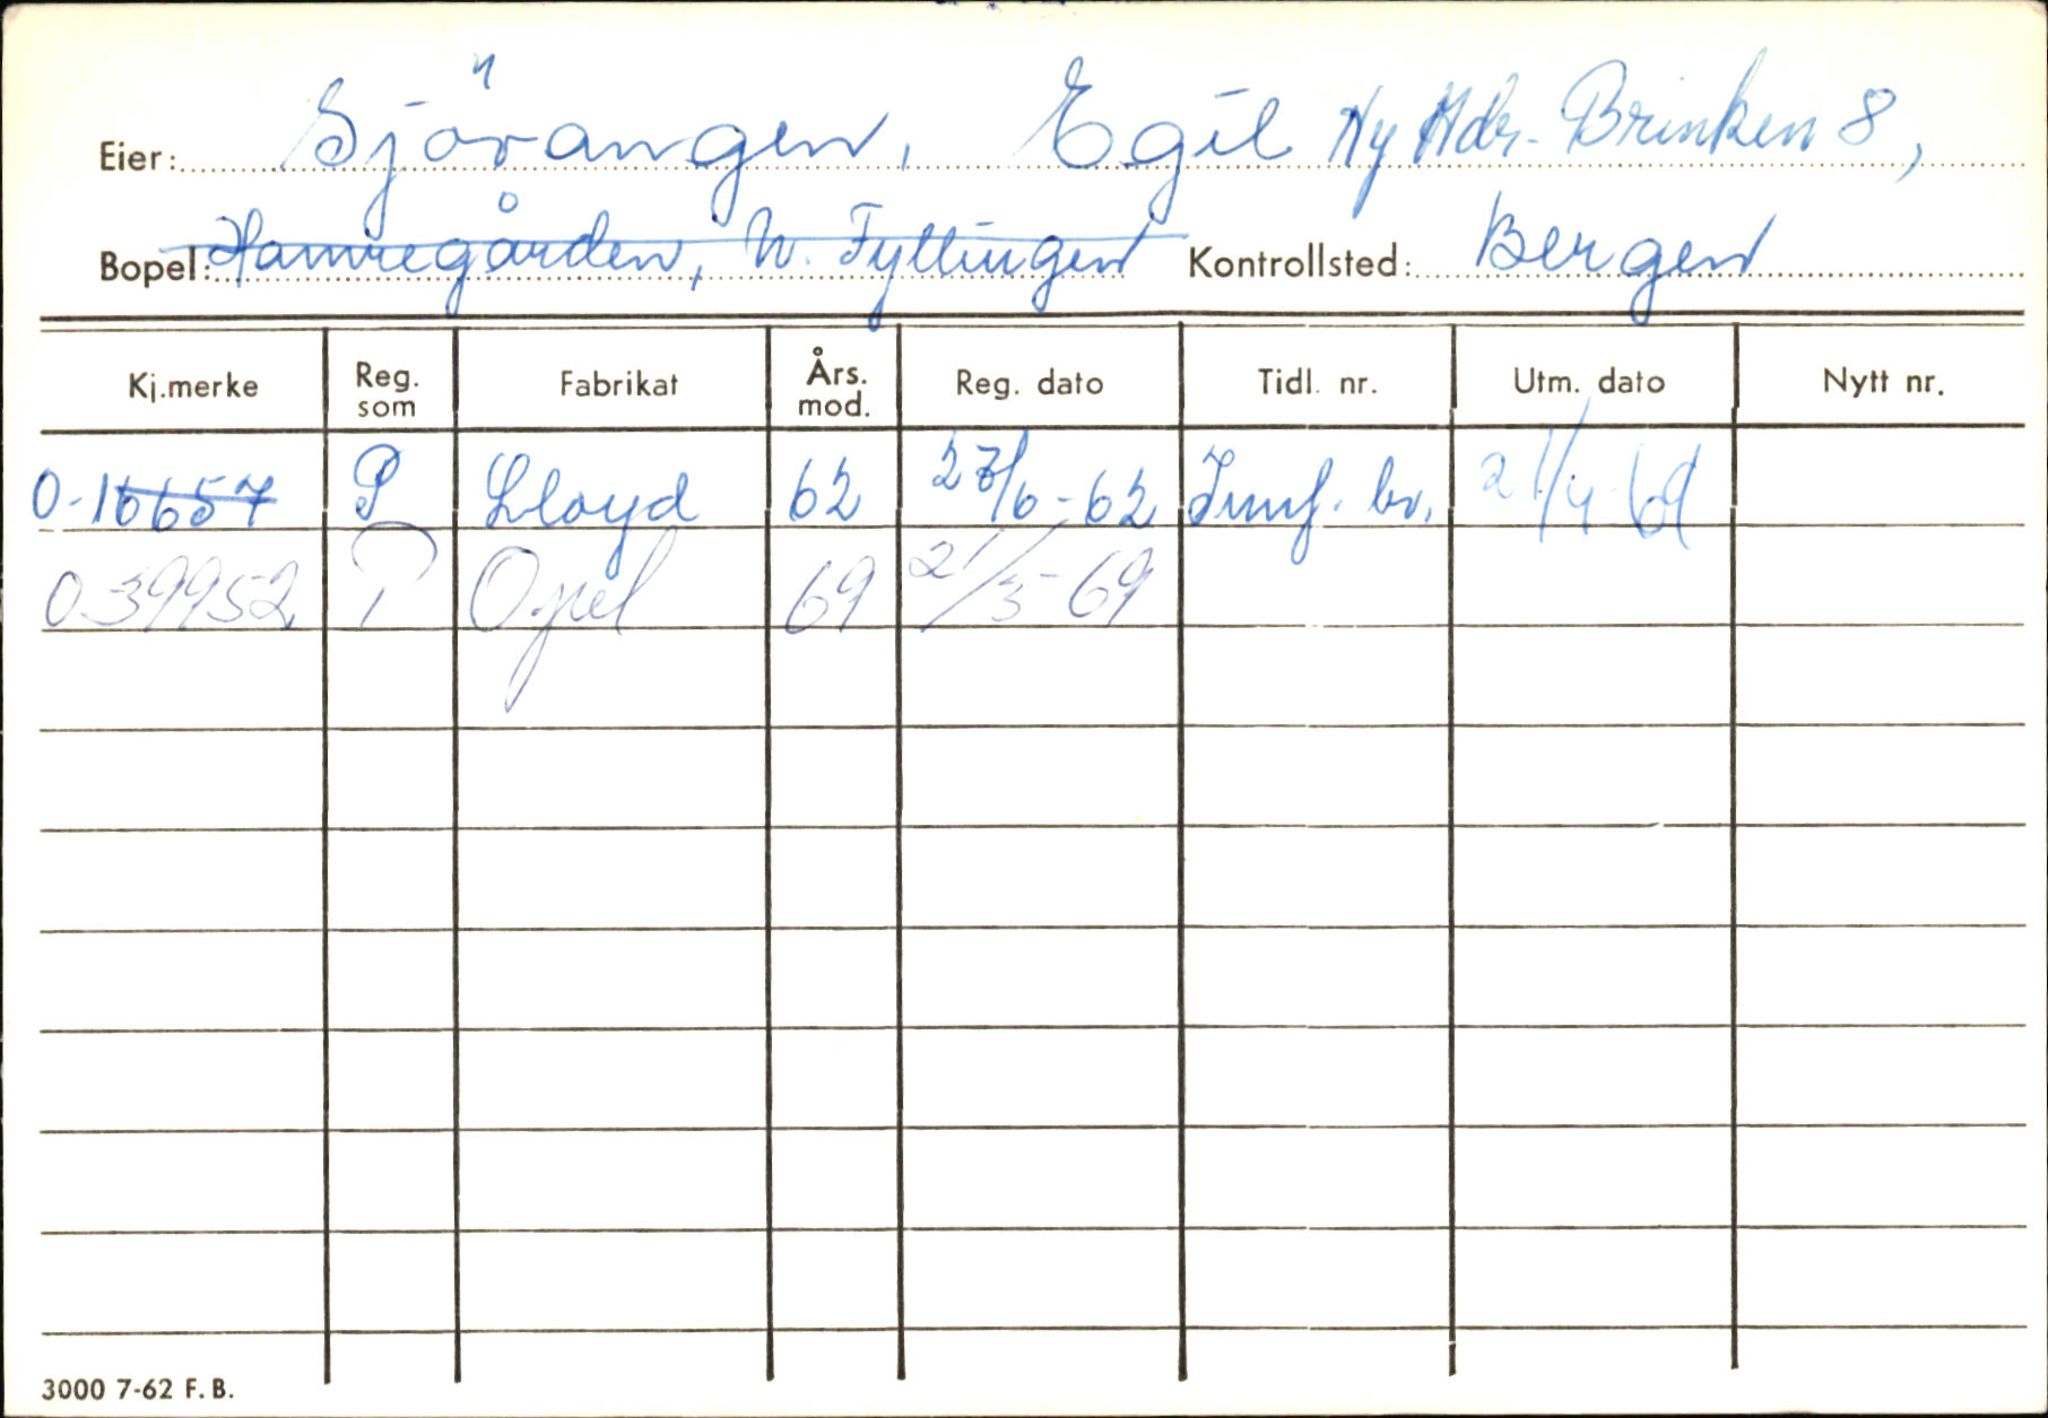 Eier: Sjövangen, Egil Ny Adr. Brinken 8,
Bopel: Hamregården, N. Fyllingen Kontrollsted: Bergen
Kj.merke Reg. som Fabrikat Års. mod. Reg. dato Tidl. nr. Utm. dato Nytt nr.
O-16657 P Lloyd 62 27/6-62 br. 21/4-69
O-39952 P Opel 69 21/5-69
3000 7-62 F. B.